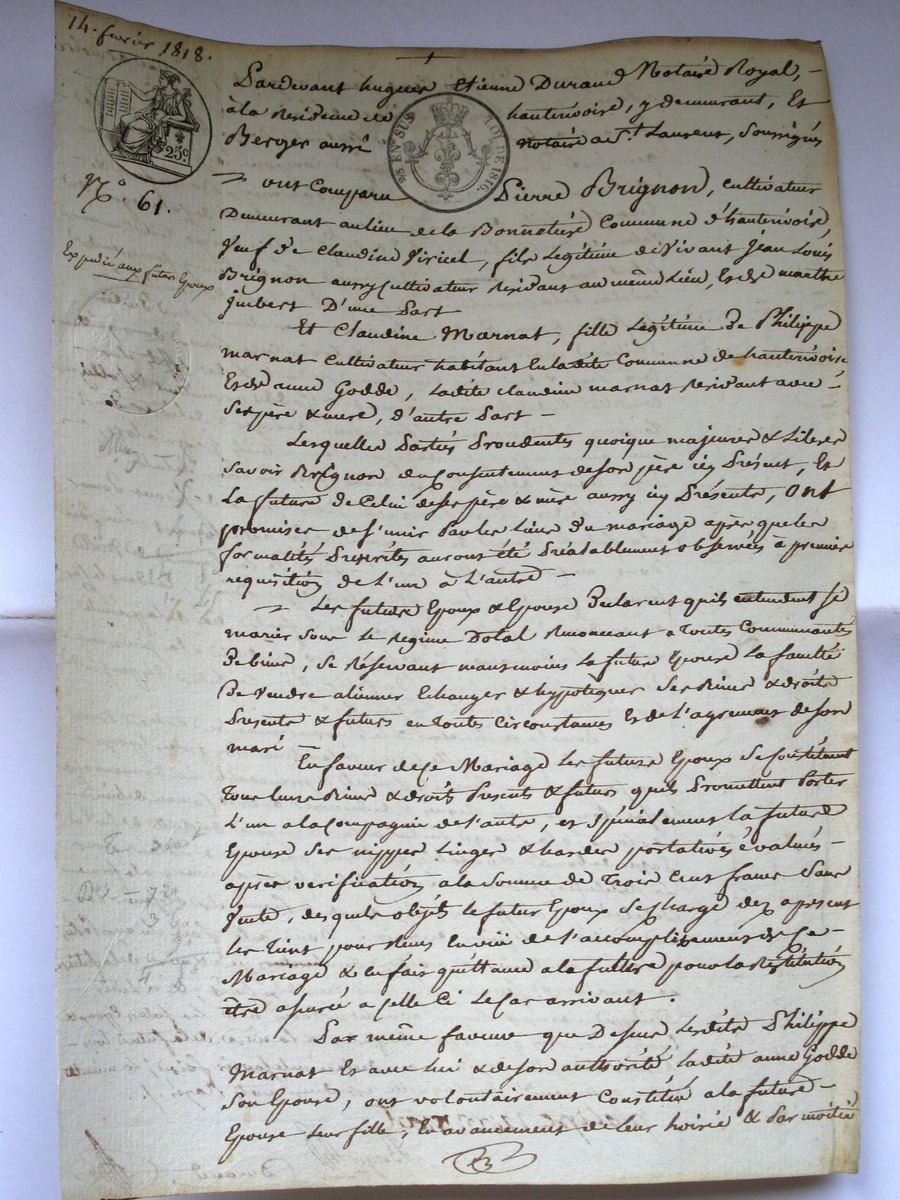 14. fevrier 1818.
Pardevant hugues Etienne Durand Notaire Royal, -
à la Residence de hauterivoire, y demeurant, Et
Berger aussi notaire a St. Laurent, Soussignés
25c
EN SUS
LOI DE 1816.
No. 61.
ont Comparu Pierre Brignon, cultivateur
Demeurant au lieu de la Bonnetiere Commune d'hauterivoire,
Veuf de Claudine Viricel, fils Légitime de Vivant Jean Louis
Expedié aux futurs Epoux
Brignon aussy Cultivateur Residant au même Lieu, Et de marthe
Jmbert D'une Part
Et Claudine Marnat, fille Légitime De Philippe
marnat Cultivateur habitant En ladite Commune de hauterivoire
Et de anne Godde, Ladite Claudine marnat Residant avec -
Ses père & mere, d'autre Part -
Lesquelles Parties Procedentes quoique majeures & Libres
Savoir Brignon du Consentement de son père icy Présent, Et
La future de Celui de ses père & mère aussy icy Présents, Ont
promises de s'unir Par les Liens Du mariage après que les
formalités Prescrites auront été Préalablement observées à premiere
réquisition de l'un à L'autre -
Les futurs Epoux & Epouse Declarent qu'ils entendent Se
marier Sous Le Regime Dotal Renoncant a Toutes Communautés
De biens, Se Réservant neansmoins La future Epouse La faculté
De Vendre alienner Echanger & hyppotequer Ses Biens & droits
Présents & futurs en Toute Circonstances Et de L'agrement de son
mari
En faveur de Ce Mariage Les futurs Epoux Se Constituent
Tous leurs Biens & droits Presents & futurs quils Promettent Porter
L'un a la Compagnie de L'autre, et Spécialement La future
Epouse Ses nippes Linges & hardes portatives évalués -
après verification a la Somme de Trois Cent francs Sans
Vente, desquels objets Le futur Epoux Se Charge dez apresent
Les Tient pour Reçus En vüe de L'accomplissement de Ce -
Mariage & En fait quittance a la future pour la Restitution
être assurée a Celle Ci Le Cas arrivant.
Par même faveur que Dessus Lesdits Philippe
Marnat Et avec Lui & de son authorité Ladite anne Godde
Son Epouse, ont volontairement Constitué a la future -
Epouse Leur fille, En avancement de Leur hoirie & Par moitié